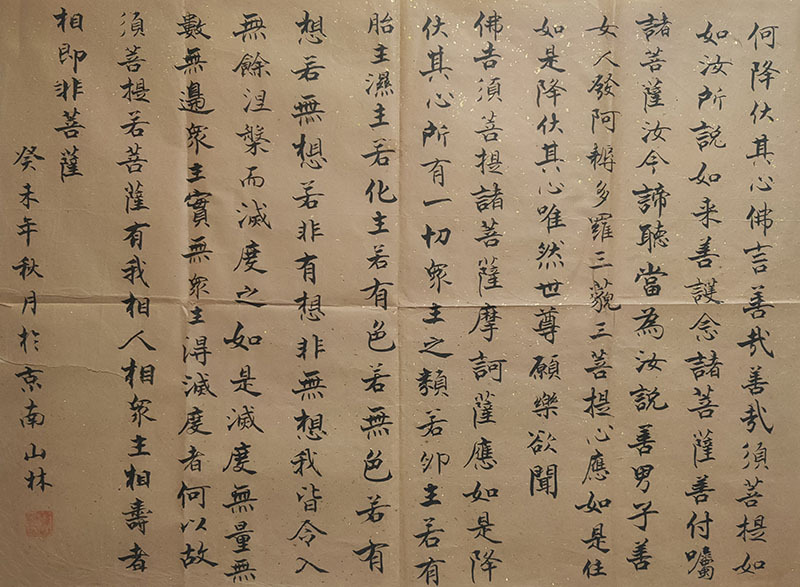 何降伏其心佛言善哉善哉須菩提如
如汝所説如来善護念諸菩薩善付囑
諸菩薩汝今諦聽當為汝説善男子善
女人發阿耨多羅三藐三菩提心應如是住
如是降伏其心唯然世尊願樂欲聞
佛告須菩提諸菩薩摩訶薩應如是降
伏其心所有一切衆生之類若卵生若有
胎生濕生若化生若有色若無色若有
想若無想若非有想非無想我皆令入
無餘涅槃而滅度之如是滅度無量無
數無邊衆生實無衆生得滅度者何以故
須菩提若菩薩有我相人相衆生相壽者
相即非菩薩
癸未年秋月於京南山林